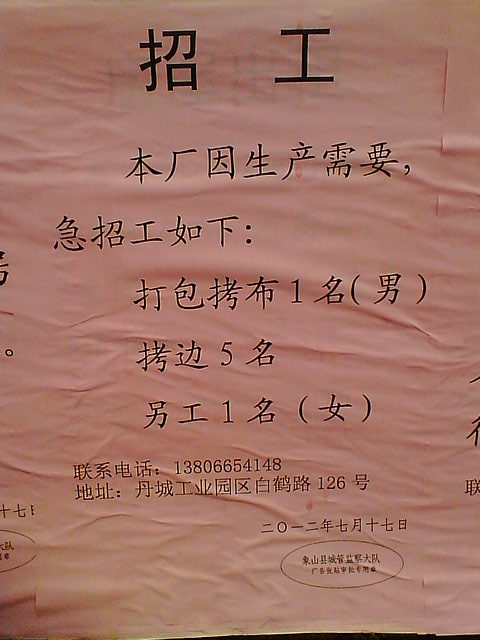 招 工
本厂因生产需要，
急招工如下：
打包拷布1名(男)
拷边5名
另工1名(女)
联系电话：13806654148
地址：丹城工业园区白鹤路126号
二〇一二年七月十七日
象山县城管监察大队
广告张贴审批专用章